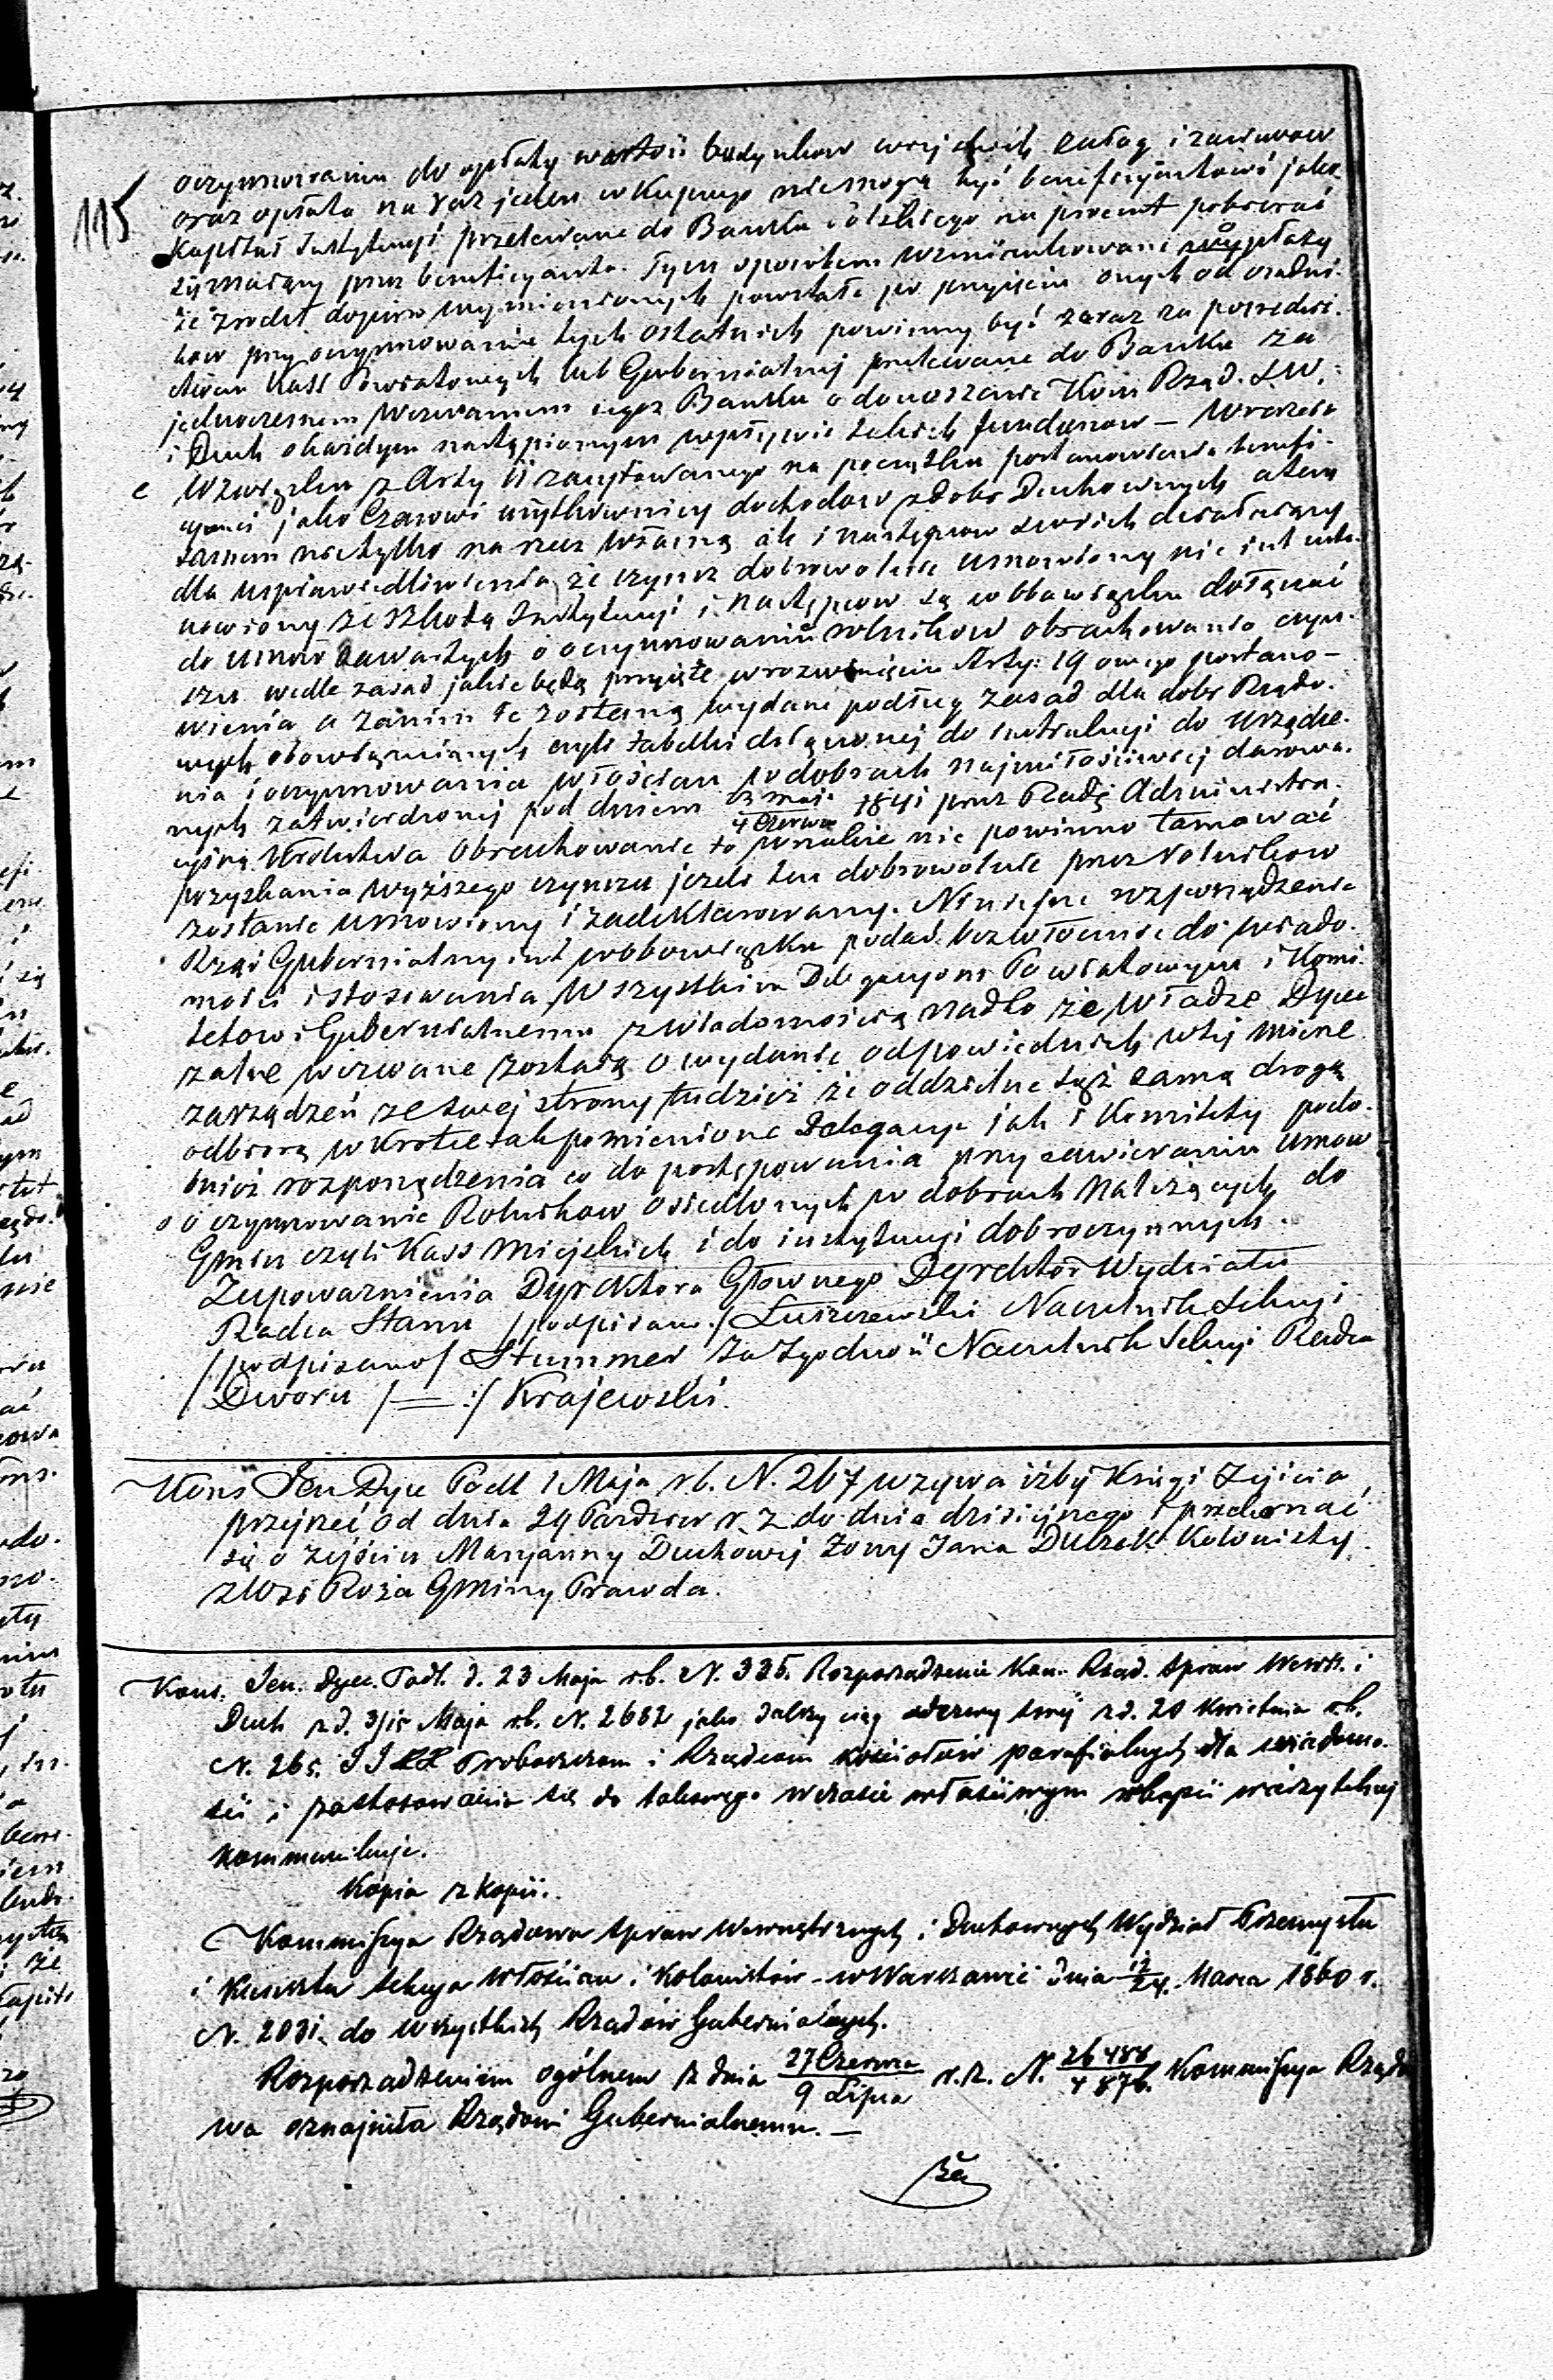 115
oczynszowaniu do opłaty wartości budynków wiejskich załog i zasiewow
oraz opłata na raz jeden wkupnego niemogą być beneficyantowi jako
Kapitał Instytucyi przelewane do Banku Polskiego na procent pobierać
się mający przez beneficyanta. Tym sposobem wzmiankowane opłaty
ze zrodeł dopiero wymienionych powstałe po przyjęciu onych od osadni-
kow przy oczynszowanie tych ostatnich powinny być zaraz za posredni-
ctwem Kass Powiatowych lub Gubernialnej przelewane do Banku za
jednoczesnem wezwaniem tegoż Banku o donoszenie Kom Rząd. S W.
i Duch o każdym nastąpionym wpływie takich funduszow — Wreszcie
w związku z Arty 11 zacytowanego na początku postanowienia benefi-
cyanci jako Czasowi użytkownicy dochodow z dobr Duchownych a tem
samem nie tylko na rzecz własną ale i następcow swoich działający
dla usprawiedliwienia że czynsz dobrowolnie umowiony nie jest usta-
nowiony ze szkodą Instytucyi i następcow są w obowiązku dołączać
do umow zawartych o oczynszowaniu rolnikow obrachowania czyn-
szu wedle zasad jakie będą przyjęte w rozwinięciu Arty: 19 owego postano-
wienia a zanim te zostaną wydane podług zasad dla dobr Rządo-
wych obowiązujących czyli tabelki dołączonej do instrukcyi do urządze-
nia i oczynszowania włościan w dobrach najmiłościwiej darowa-
nych zatwierdzonej pod dniem 23 maja / 4 Czerwca 1841 przez Radę Administra-
cyjną Krolestwa Obrachowanie to wszakże nie powinno tamować
pozyskania wyższego czynszu jezeli ten dobrowolnie przez rolnikow
zostanie umowiony i zadeklarowany. Niniejsze rozporządzenie
Rząd Gubernialny jest w obowiązku podać bezwłocznie do wiado-
mości i stosowania Wszystkim Delegacyom Powiatowym i Komi-
tetowi Gubernialnemu z wiadomością nadto że władze Dyece
zalne wezwane zostają o wydanie odpowiednich w tej mierze
zarządzeń ze swej strony tudzież że oddzielne tąż samą drogą
odbiorą w krotce tak pomienione Delegacye jak i Komitety podo-
bnież rozporządzenia co do postępowania przy zawieraniu umow
o oczynszowanie Rolnikow osiedlonych w dobrach Należących do
Gmin czyli Kass Miejskich i do instytucyi dobroczynnych.
Z upoważnienia Dyrektora Głownego Dyrektor Wydziału
Radca Stanu /podpisano/ Łuszczewski Naczelnik Sekcyi
/podpisano/ Stummer Za zgodność Naczelnik Sekcyi Radca
Dworu /=:/ Krajewski.
Kons Jen Dyec Podl 1 Maja r.b. N. 267 wzywa iżby Księgi Zejścia
przejrzeć od dnia 29 Pazdzier r. z do dnia dzisiejszego i przekonać
się o zejściu Maryanny Duchowej żony Jana Kolonisty
z Wsi Roża Gminy Prawda.
Kons. Jen. Dyec. Podl. d. 23 Maja r.b. N. 335. Rozporządzenie Kom. Rząd. Spraw Wewn. i
Duch z d. 3/15 Maja r.b. N. 2682 jako dalszy ciąg odezwy swej z d. 20 Kwietnia r.b.
N. 265. JJ XX Proboszczom i Rządcom kościołów parafialnych dla wiadomo-
ści i zastosowania się do takowego w czasie właściwym w kopii wierzytelnej
kommunikuje.
Kopia z kopii.
Kommissya Rządowa Spraw Wewnętrznych i Duchownych Wydział Przemysłu
i Kunsztu Sekcya Włościan i Kolonistów – w Warszawie dnia 12/24. Marca 1860 r.
N. 2031. do wszystkich Rządów Gubernialnych.
Rozporządzeniem ogólnem z dnia 27 Czerwca / 9 Lipca r.z. N. 26488 / 4876. Kommissya Rządo
wa oznajmiła Rządowi Gubernialnemu. —
że